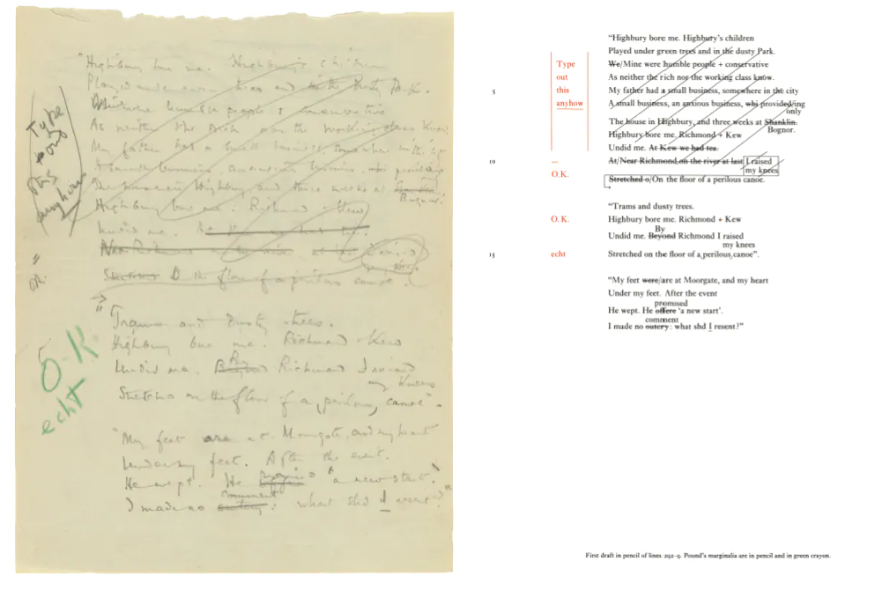 "Highbury bore me. Highbury's children
Played under green trees and in the dusty Park.
We Mine were humble people + conservative
As neither the rich nor the working class know.
My father had a small business, somewhere in the city
A small business, an anxious business, who providing
The house in Highbury, and three weeks at Shanklin. Bognor.
Highbury bore me. Richmond + Kew
Undid me. At Kew we had tea.
Near Richmond on the river at last I raised my knees
Stretched On the floor of a perilous canoe.
Type out this anyhow
O.K.
"Trams and dusty trees.
Highbury bore me. Richmond + Kew
Undid me. Beyond By Richmond I raised my knees
Stretched on the floor of a perilous canoe".
O.K.
echt
"My feet are at Moorgate, and my heart
Under my feet. After the event.
He wept. He promised 'a new start'.
I made no outcry comment: what shd I resent?"
"Highbury bore me. Highbury's children
Played under green trees and in the dusty Park.
We/Mine were humble people + conservative
As neither the rich nor the working class know.
5 My father had a small business, somewhere in the city
A small business, an anxious business, who provided/ing
only
The house in Highbury, and three weeks at Shanklin.
Bognor.
Highbury bore me. Richmond + Kew
Undid me. At Kew we had tea.
10 At/Near Richmond on the river at last I raised
my knees
Stretched o/On the floor of a perilous canoe.
Type
out
this
anyhow
—
O.K.
"Trams and dusty trees.
O.K. Highbury bore me. Richmond + Kew
By
Undid me. Beyond Richmond I raised
my knees
15 echt Stretched on the floor of a perilous canoe".
"My feet were/are at Moorgate, and my heart
Under my feet. After the event
promised
He wept. He offere 'a new start'.
comment
I made no outcry: what shd I resent?"
First draft in pencil of lines 292-9. Pound's marginalia are in pencil and in green crayon.